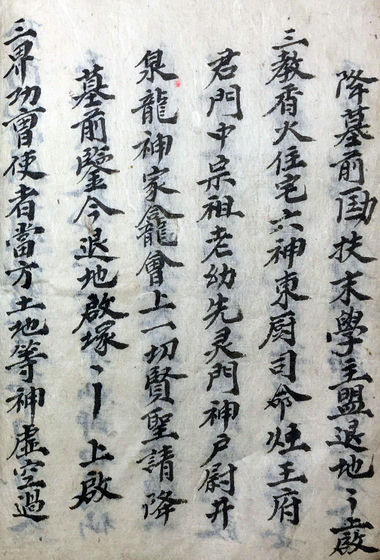 降墓前匡扶末學主盟退地〻上啟
三教香火住宅六神東厨司命灶王府
君門中宗祖老幼先灵門神户尉井
泉龍神家龕會上一切賢聖請降
墓前鑒今退地啟塚〻丨上啟
三界功曹使者當方土地等神虛空過